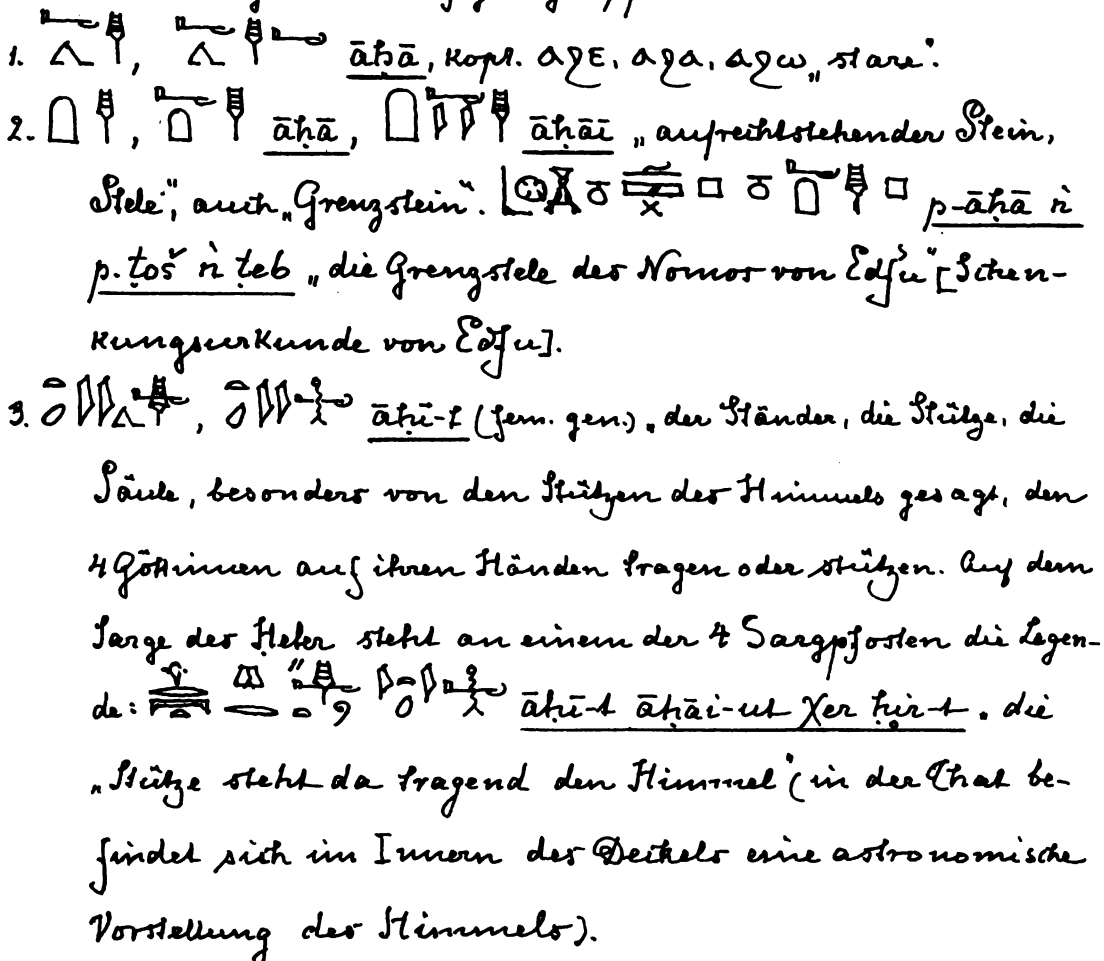 1. āḥā, kopt. ⲁϩⲉ, ⲁϩⲁ, ⲁϩⲱ „stare“.
2. āḥā, āḥāi „aufrechtstehender Stein,
Stele“, auch „Grenzstein“. p-āḥā ǹ
p. ṭoš ǹ ṭeb „die Grenzstele des Nomos von Edfu“ [Schen-
kungsurkunde von Edfu].
3. āḥi-t (fem. gen.) „der Ständer, die Stütze, die
Säule, besonders von den Stützen des Himmels gesagt, den
4 Göttinnen auf ihren Händen tragen oder stützen. Auf dem
Sarge des Ḥeter steht an einem der 4 Sargpfosten die Legen-
de: āḥi-t āḥāi-ut χer ḥir-t „die
„Stütze steht da tragend den Himmel“ (in der That be-
findet sich im Innern des Deckels eine astronomische
Vorstellung des Himmels).